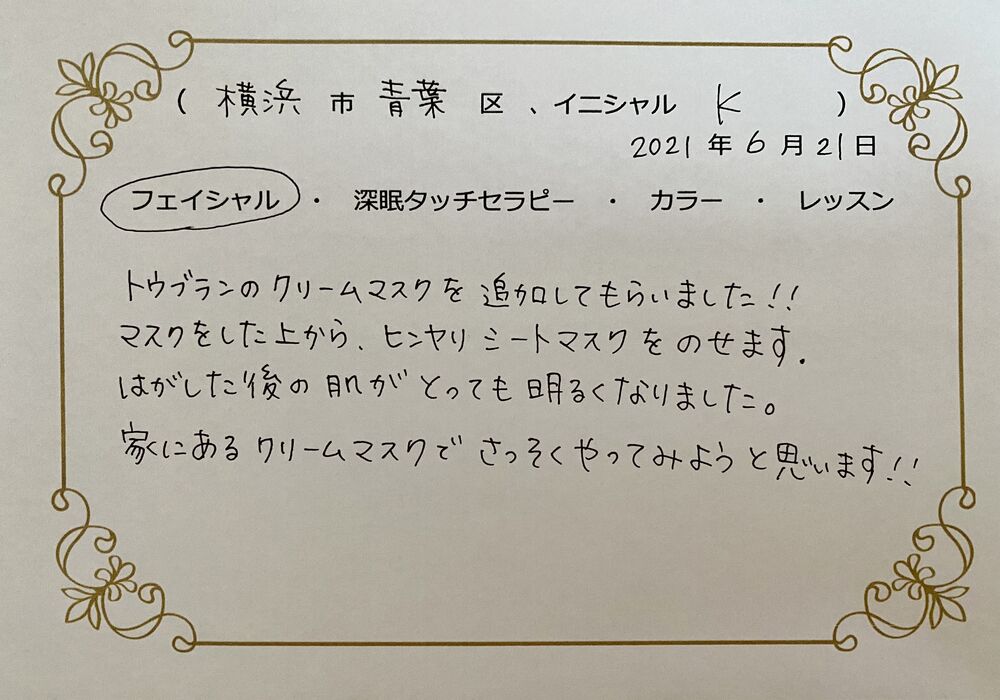 ( 横浜 市 青葉 区 、イニシャル K )
2021 年 6 月 21 日
フェイシャル ・ 深眠タッチセラピー ・ カラー ・ レッスン
トウブランのクリームマスクを追加してもらいました!!
マスクをした上から、ヒンヤリシートマスクをのせます.
はがした後の肌がとっても明るくなりました。
家にあるクリームマスクでさっそくやってみようと思います!!